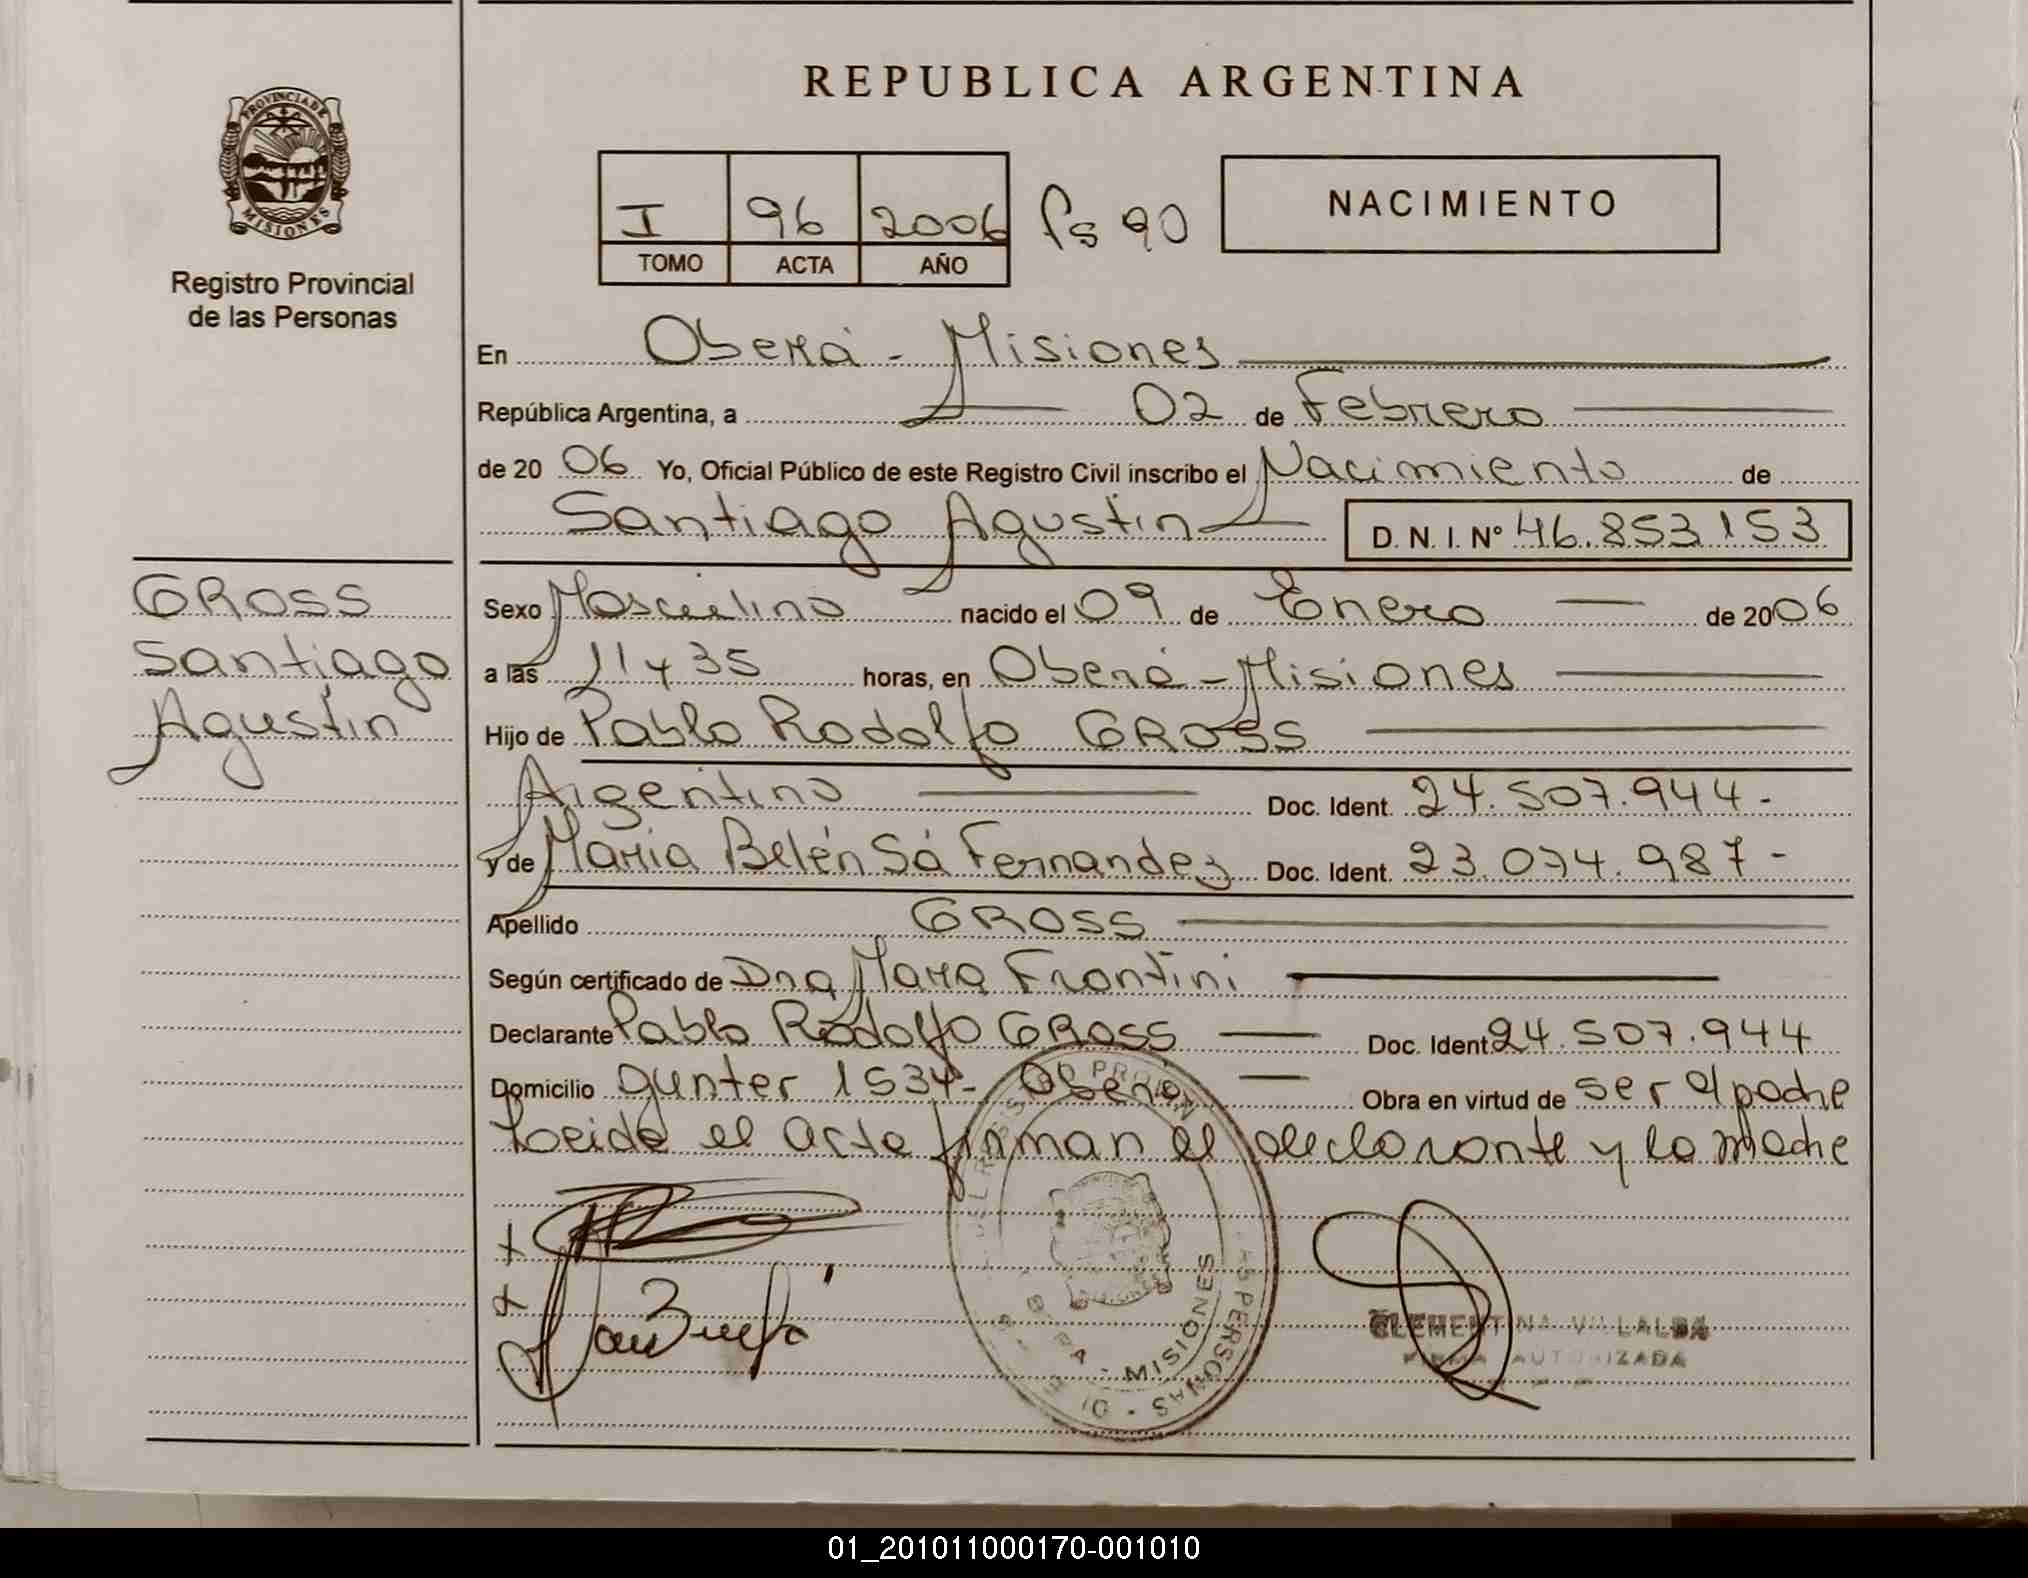 REPUBLICA ARGENTINA
PROVINCIA DE
MISIONES
Registro Provincial
de las Personas
I 96 2006 Fs 90
TOMO ACTA AÑO
NACIMIENTO
En Oberá - Misiones
República Argentina, a 02 de Febrero
de 20 06 Yo, Oficial Público de este Registro Civil inscribo el Nacimiento de
Santiago Agustín D. N. I. N° 46.853153
GROSS
Santiago
Agustín
Sexo Masculino nacido el 09 de Enero de 2006
a las 11 y 35 horas, en Oberá - Misiones
Hijo de Pablo Rodolfo GROSS
Argentino Doc. Ident. 24.507.944-
y de María Belén Sá Fernandez Doc. Ident. 23.074.987-
Apellido GROSS
Según certificado de Dra Mara Frontini
Declarante Pablo Rodolfo GROSS Doc. Ident. 24.507.944
Domicilio gunter 1534- Oberá Obra en virtud de ser el padre
Leida el acta firman el declarante y la madre
MISIONES
PERSONAS
CLEMENTINA VILLALBA
FIRMA AUTORIZADA
01_201011000170-001010